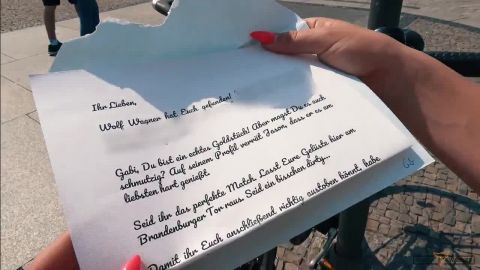 Ihr Lieben,
Wolf Wagner hat Euch gefunden!
Gabi, Du bist ein echtes Goldstück! Aber magst Du es auch
schmutzig? Auf seinem Profil verrät Jason, dass er es am
liebsten hart genießt.
Seid ihr das perfekte Match. Lasst Eure Gelüste hier am
Brandenburger Tor raus. Seid ein bisschen dirty...
Damit ihr Euch anschließend richtig austoben könnt, habe